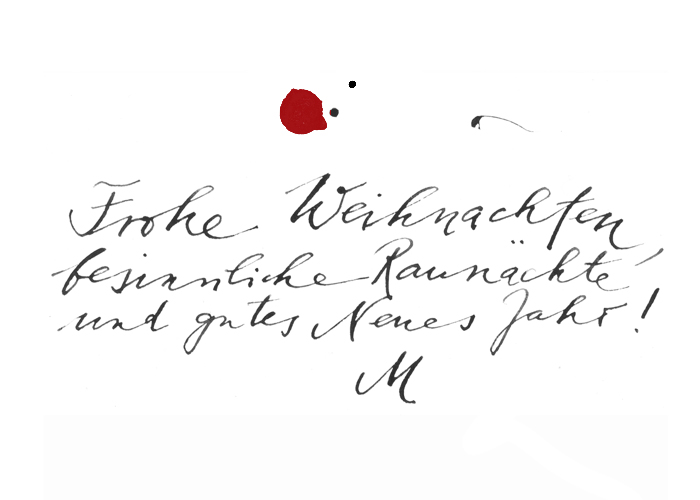 Frohe Weihnachten,
besinnliche Raunächte
und gutes Neues Jahr!
M